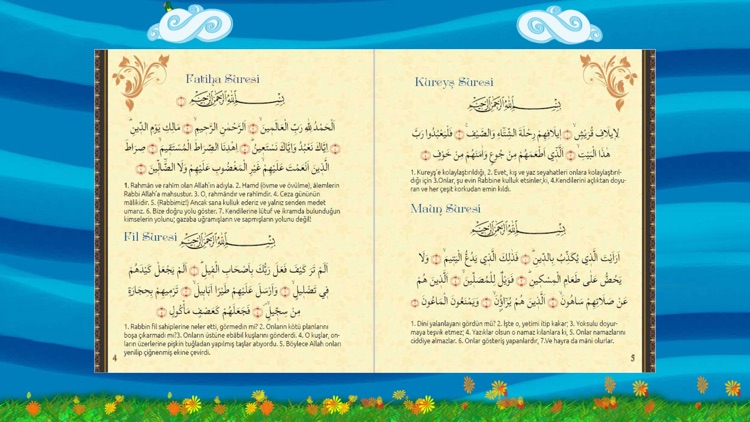 Fatiha Sûresi
بِسْمِ اللّٰهِ الرَّحْمٰنِ الرَّحِيمِ
اَلْحَمْدُ لِلّٰهِ رَبِّ الْعَالَمِينَ اَلرَّحْمٰنِ الرَّحِيمِ مَالِكِ يَوْمِ الدِّينِ
اِيَّاكَ نَعْبُدُ وَاِيَّاكَ نَسْتَعِينُ اِهْدِنَا الصِّرَاطَ الْمُسْتَقِيمَ صِرَاطَ
الَّذِينَ اَنْعَمْتَ عَلَيْهِمْ غَيْرِ الْمَغْضُوبِ عَلَيْهِمْ وَلَا الضَّالِّينَ
1. Rahmân ve rahîm olan Allah'ın adıyla. 2. Hamd (övme ve övülme), âlemlerin
Rabbi Allah'a mahsustur. 3. O, rahmândır ve rahîmdir. 4. Ceza gününün
mâlikidir. 5. (Rabbimiz!) Ancak sana kulluk ederiz ve yalnız senden medet
umarız. 6. Bize doğru yolu göster. 7. Kendilerine lütuf ve ikramda bulunduğun
kimselerin yolunu; gazaba uğramışların ve sapmışların yolunu değil!
Fil Sûresi
بِسْمِ اللّٰهِ الرَّحْمٰنِ الرَّحِيمِ
اَلَمْ تَرَ كَيْفَ فَعَلَ رَبُّكَ بِاَصْحَابِ الْفِيلِ اَلَمْ يَجْعَلْ كَيْدَهُمْ
فِي تَضْلِيلٍ وَاَرْسَلَ عَلَيْهِمْ طَيْرًا اَبَابِيلَ تَرْمِيهِمْ بِحِجَارَةٍ
مِنْ سِجِّيلٍ فَجَعَلَهُمْ كَعَصْفٍ مَأْكُولٍ
1. Rabbin fil sahiplerine neler etti, görmedin mi? 2. Onların kötü planlarını
boşa çıkarmadı mı?3. Onların üstüne ebâbil kuşlarını gönderdi. 4. O kuşlar, on-
ların üzerlerine pişkin tuğladan yapılmış taşlar atıyordu. 5. Böylece Allah onları
yenilip çiğnenmiş ekine çevirdi.
4
Kureyş Sûresi
بِسْمِ اللّٰهِ الرَّحْمٰنِ الرَّحِيمِ
لِاِيلَافِ قُرَيْشٍ اِيلَافِهِمْ رِحْلَةَ الشِّتَاءِ وَالصَّيْفِ فَلْيَعْبُدُوا رَبَّ
هٰذَا الْبَيْتِ اَلَّذِي اَطْعَمَهُمْ مِنْ جُوعٍ وَاٰمَنَهُمْ مِنْ خَوْفٍ
1. Kureyş'e kolaylaştırıldığı, 2. Evet, kış ve yaz seyahatleri onlara kolaylaştırıl-
dığı için 3.Onlar, şu evin Rabbine kulluk etsinler,ki, 4.Kendilerini açlıktan doyu-
ran ve her çeşit korkudan emin kıldı.
Maûn Sûresi
بِسْمِ اللّٰهِ الرَّحْمٰنِ الرَّحِيمِ
اَرَاَيْتَ الَّذِي يُكَذِّبُ بِالدِّينِ فَذٰلِكَ الَّذِي يَدُعُّ الْيَتِيمَ وَلَا
يَحُضُّ عَلٰى طَعَامِ الْمِسْكِينِ فَوَيْلٌ لِلْمُصَلِّينَ اَلَّذِينَ هُمْ
عَنْ صَلَاتِهِمْ سَاهُونَ اَلَّذِينَ هُمْ يُرَاؤُنَ وَيَمْنَعُونَ الْمَاعُونَ
1. Dini yalanlayanı gördün mü? 2. İşte o, yetimi itip kakar; 3. Yoksulu doyur-
maya teşvik etmez; 4. Yazıklar olsun o namaz kılanlara ki, 5. Onlar namazlarını
ciddiye almazlar. 6. Onlar gösteriş yapanlardır, 7.Ve hayra da mâni olurlar.
5